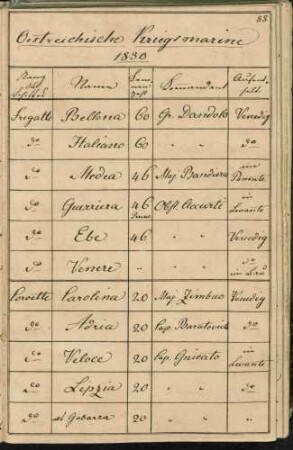 88
Oestreichische Kriegsmarine
1830
Rang des Schiffes Name Commandant Aufent-halt
Fregatte Bellona 60 Gr. Dandolo Venedig
do Italiano 60 " " do
do Medea 46 Maj Bandiera im
do Guerriera 46 in Levante
do Ebe 46 " " Venedig
do Venere " " " do im Bau
Corvette Carolina 20 Maj Zimbao Venedig
do Adria 20 Cap. Baratovich do
do Veloce 20 Cap. in Levante
do Lepzia 20 " " "
do et Gabarra 20 " " "